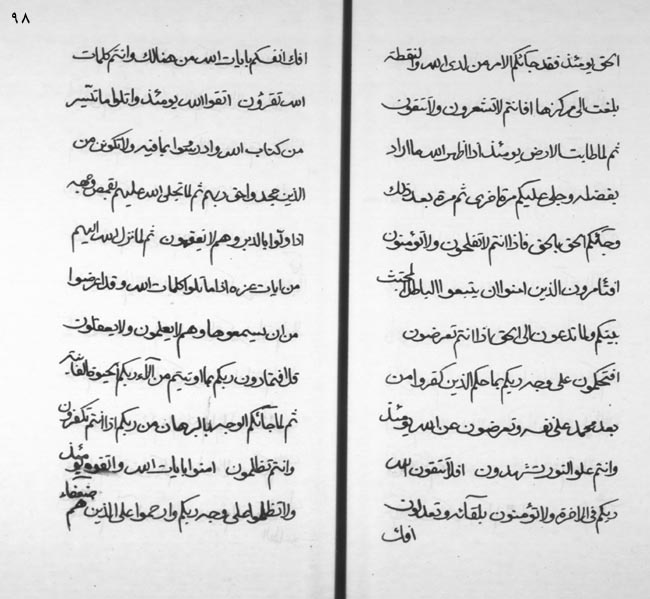 ٩٨
الحق يومئذ فقد جائكم الامر من لدى الله والنقطة
بلغت الى مركزها افانتم لا تشعرون ولا تتقون
ثم لما طابت الارض يومئذ اذا ظهر الله ما اراد
بفضله وجلى عليكم مرة اخرى ثم مرة بعد ذلك
وجائكم الحق بالحق فاذا انتم لا تفلحون ولا تؤمنون
افتامرون الذين امنوا ان يتبعوا الباطل
بينكم ولما تدعون الى الحق اذا انتم تعرضون
افتحكمون على وجه ربكم بما حكم الذين كفروا من
بعد محمد على نفسه وتعرضون عن الله يومئذ
وانتم على النور تشهدون افلا تتقون الله
ربكم فى الاخرة ولا تؤمنون بلقائه وتعدلون
افك
افك انفسكم بايات الله من هنالك وانتم كلمات
الله تقرؤن اتقوا الله يومئذ واتلوا ما تيسر
من كتاب الله وادرسوا بما فيه ولا تكونن من
الذين جحدوا حق ربهم ثم لما تجلى الله عليهم بقمص وجهه
اذا ولوا بالدبر وهم لا يفقهون ثم لما نزل الله اليهم
من ايات عزه اذا ما تلوا كلمات الله وقد اعرضوا
من ان يسمعوها وهم لا يعلمون ولا يعقلون
قل افتمارون ربكم بما اوتيتم من آلاء ربكم فى الحيوة الفانية
ثم لما جائكم الوجه بالبرهان من ربكم اذا انتم تكفرون
وانتم تظلمون امنوا بايات الله واتقوه يومئذ
ولا تظلموا على وجه ربكم وارحموا على الذين هم ضعفاء